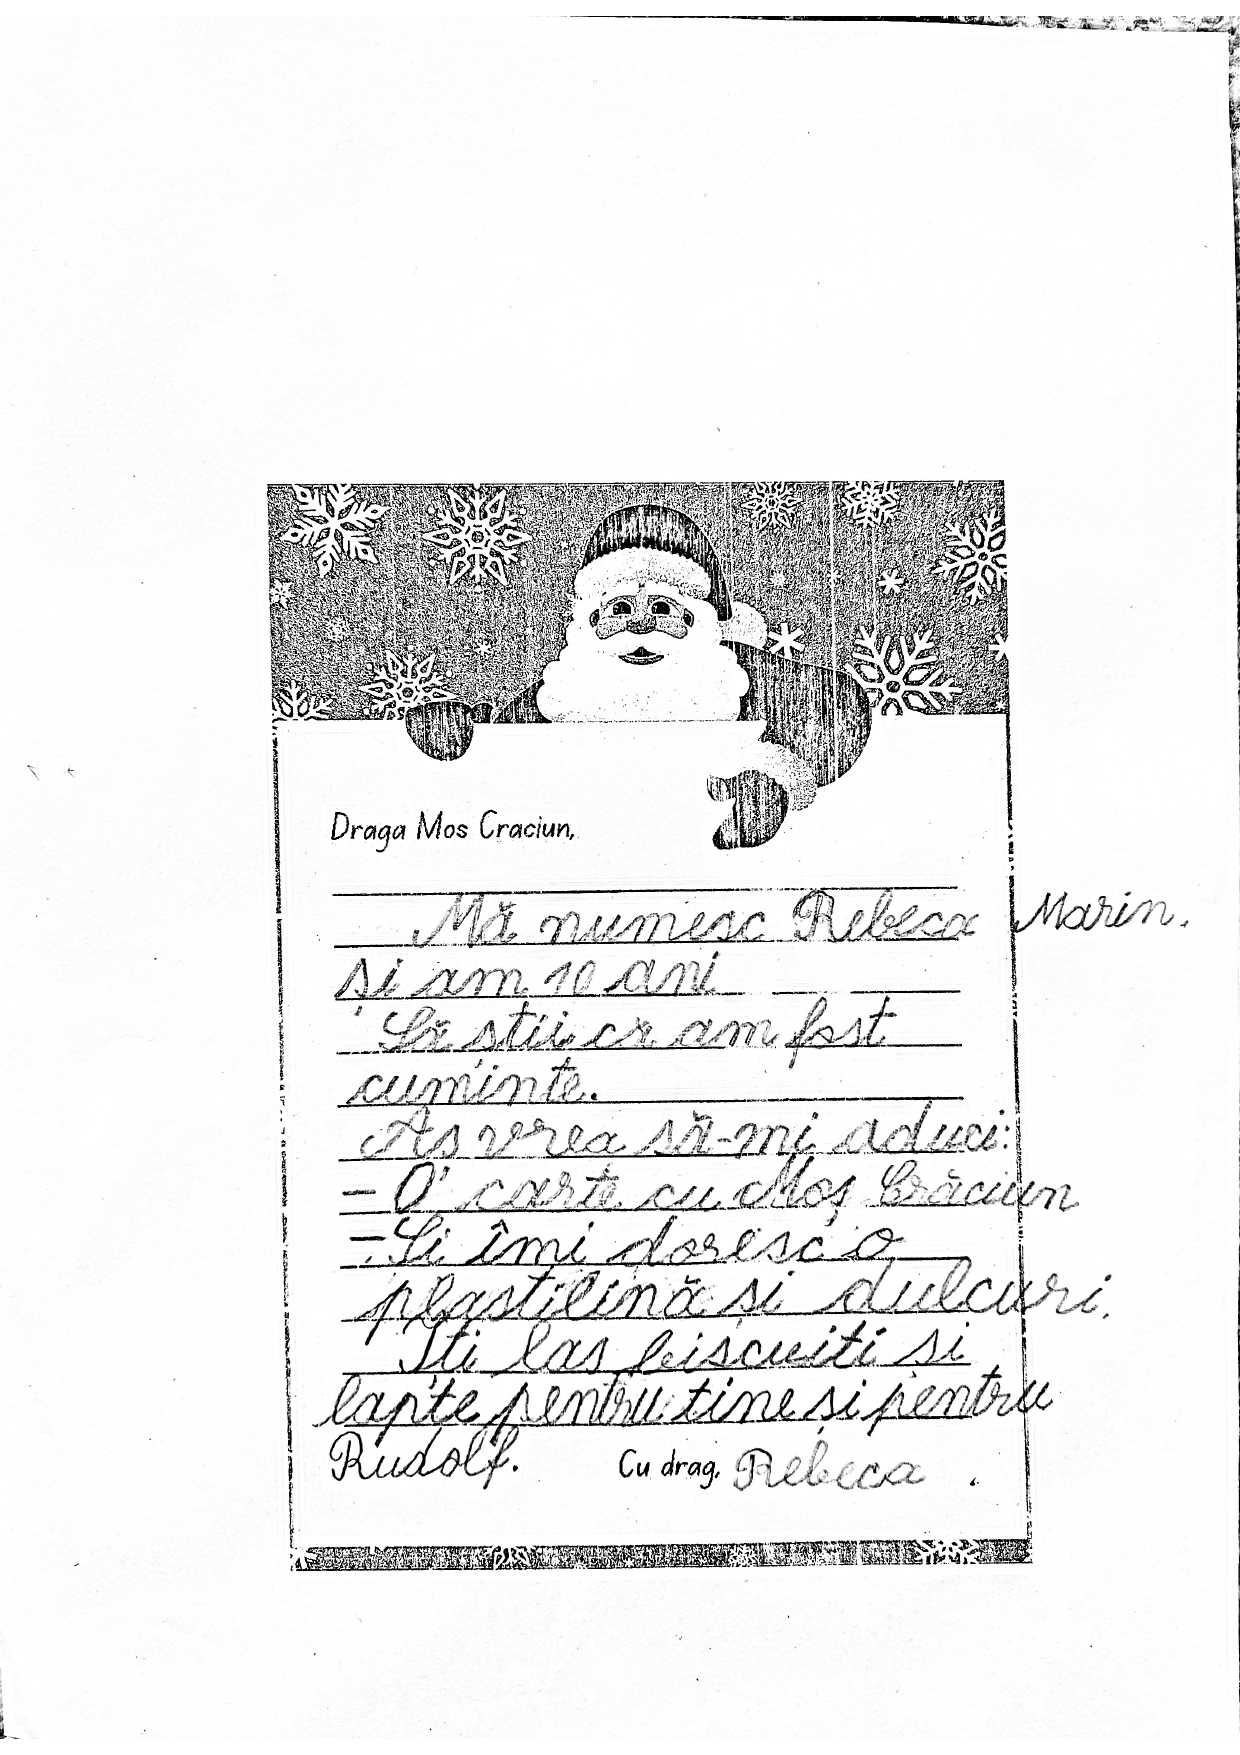 Draga Mos Craciun,
Mă numesc Rebeca Marin.
și am 10 ani
Să știi că am fost
cuminte.
As vrea să-mi aduci:
- O carte cu Moș Crăciun
- Și îmi doresc o
plastilină și dulcuri.
Îți las biscuiti si
lapte pentru tine și pentru
Rudolf. Cu drag, Rebeca.